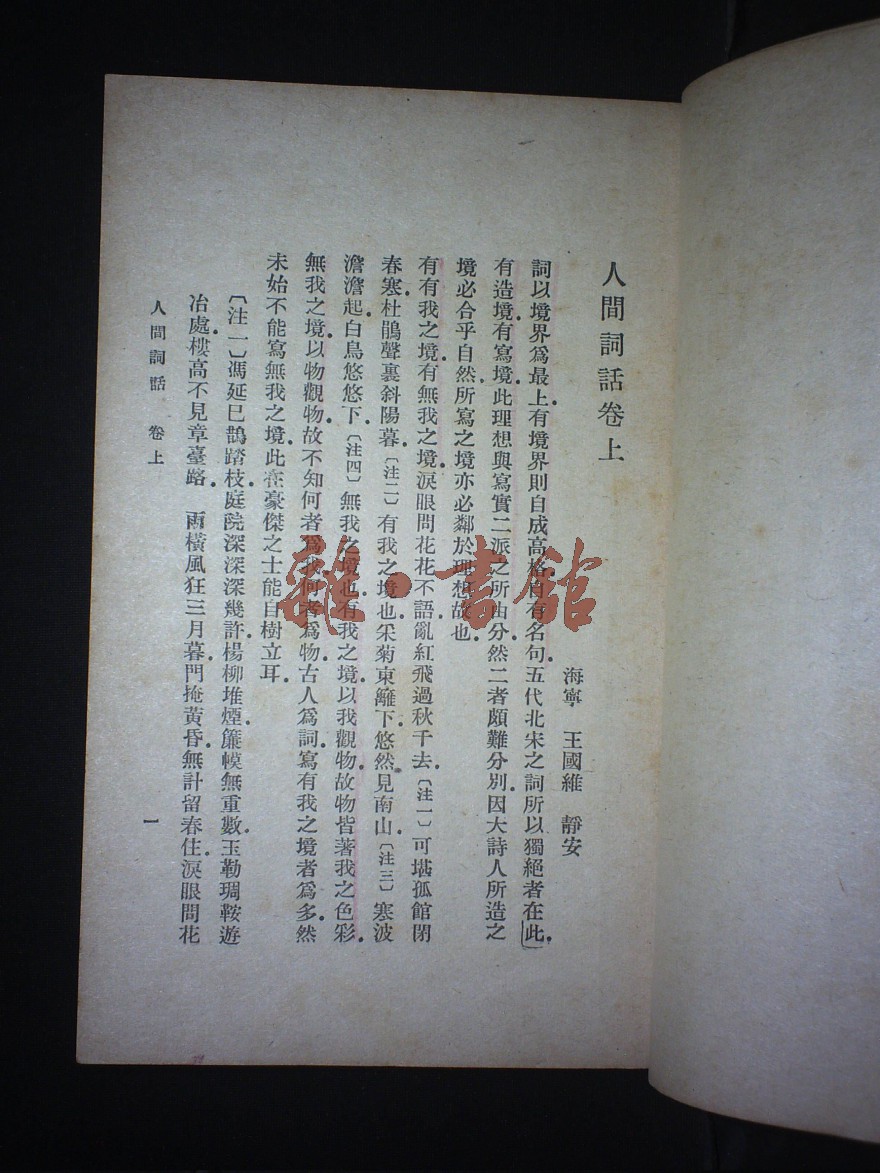 人間詞話卷上
海寧　王國維　靜安
詞以境界爲最上．有境界則自成高格．自有名句．五代北宋之詞所以獨絕者在此．
有造境．有寫境．此理想與寫實二派之所由分．然二者頗難分別．因大詩人所造之
境必合乎自然．所寫之境亦必鄰於理想故也．
有有我之境．有無我之境．淚眼問花花不語．亂紅飛過秋千去．〔注一〕可堪孤館閉
春寒．杜鵑聲裏斜陽暮．〔注二〕有我之境也．采菊東籬下．悠然見南山．〔注三〕寒波
澹澹起．白鳥悠悠下．〔注四〕無我之境也．有我之境．以我觀物．故物皆著我之色彩．
無我之境．以物觀物．故不知何者爲我．何者爲物．古人爲詞．寫有我之境者爲多．然
未始不能寫無我之境．此在豪傑之士能自樹立耳．
〔注一〕馮延巳鵲踏枝．庭院深深深幾許．楊柳堆煙．簾幙無重數．玉勒琱鞍遊
冶處．樓高不見章臺路．　雨橫風狂三月暮．門掩黃昏．無計留春住．淚眼問花
人間詞話　卷上
一
雜·書館